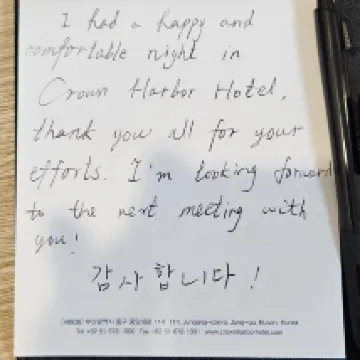 I had a happy and
comfortable night in
Crown Harbor Hotel,
thank you all for your
efforts. I'm looking forward
to the next meeting with
you!
감사합니다!
부산광역시 중구 중앙대로 114 114, Jungang-daero, Jung-gu, Busan, Korea
www.crownharborhotel.com